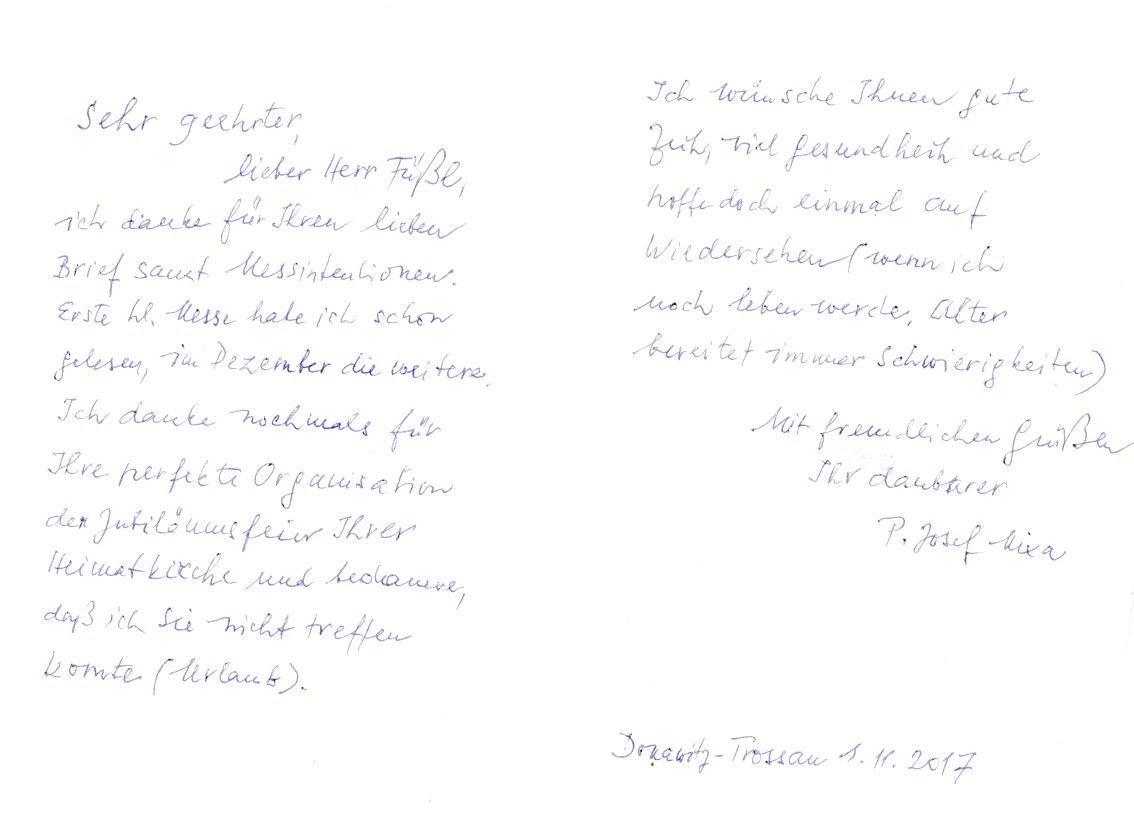 Sehr geehrter,
lieber Herr Füßl,
ich danke für Ihren lieben
Brief samt Messintentionen.
Erste hl. Messe habe ich schon
gelesen, im Dezember die weitere.
Ich danke nochmals für
Ihre perfekte Organisation
der Jubiläumsfeier Ihrer
Heimatkirche und bedauere,
daß ich Sie nicht treffen
konnte (Urlaub).
Ich wünsche Ihnen gute
Zeit, viel Gesundheit und
hoffe doch einmal auf
Wiedersehen (wenn ich
noch leben werde, Alter
bereitet immer Schwierigkeiten)
Mit freundlichen Grüßen
Ihr dankbarer
P. Josef Mixa
Donawitz-Trossau 1.11.2017